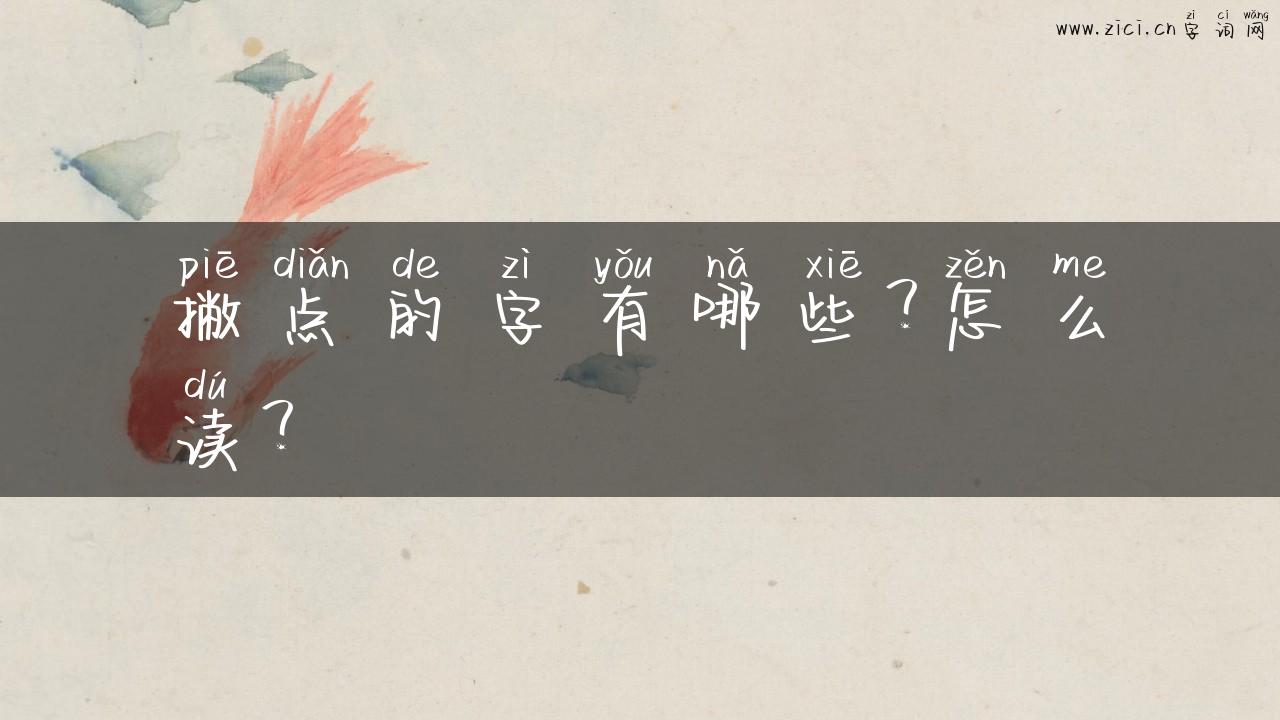 www.zici.cn字词网
zì cí wǎng
piě diǎn de zì yǒu nǎ xiē zěn me
撇点的字有哪些？怎么
dú
读？